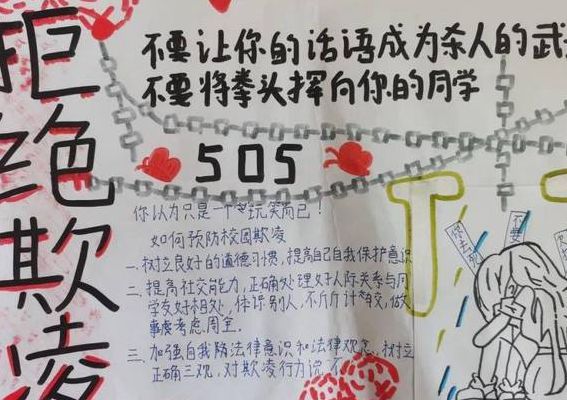 拒绝欺凌
不要让你的话语成为杀人的武
不要将拳头挥向你的同学
SOS
你认为只是一个玩笑而已!
如何预防校园欺凌
一、树立良好的道德习惯，提高自己自我保护意识
二、提高社交能力，正确处理好人际关系与同
学友好相处，体谅别人，不斤斤计较，做
事考虑周全。
三、加强自我防法律意识和法律观念，树立
正确三观，对欺凌行为说"不
不要